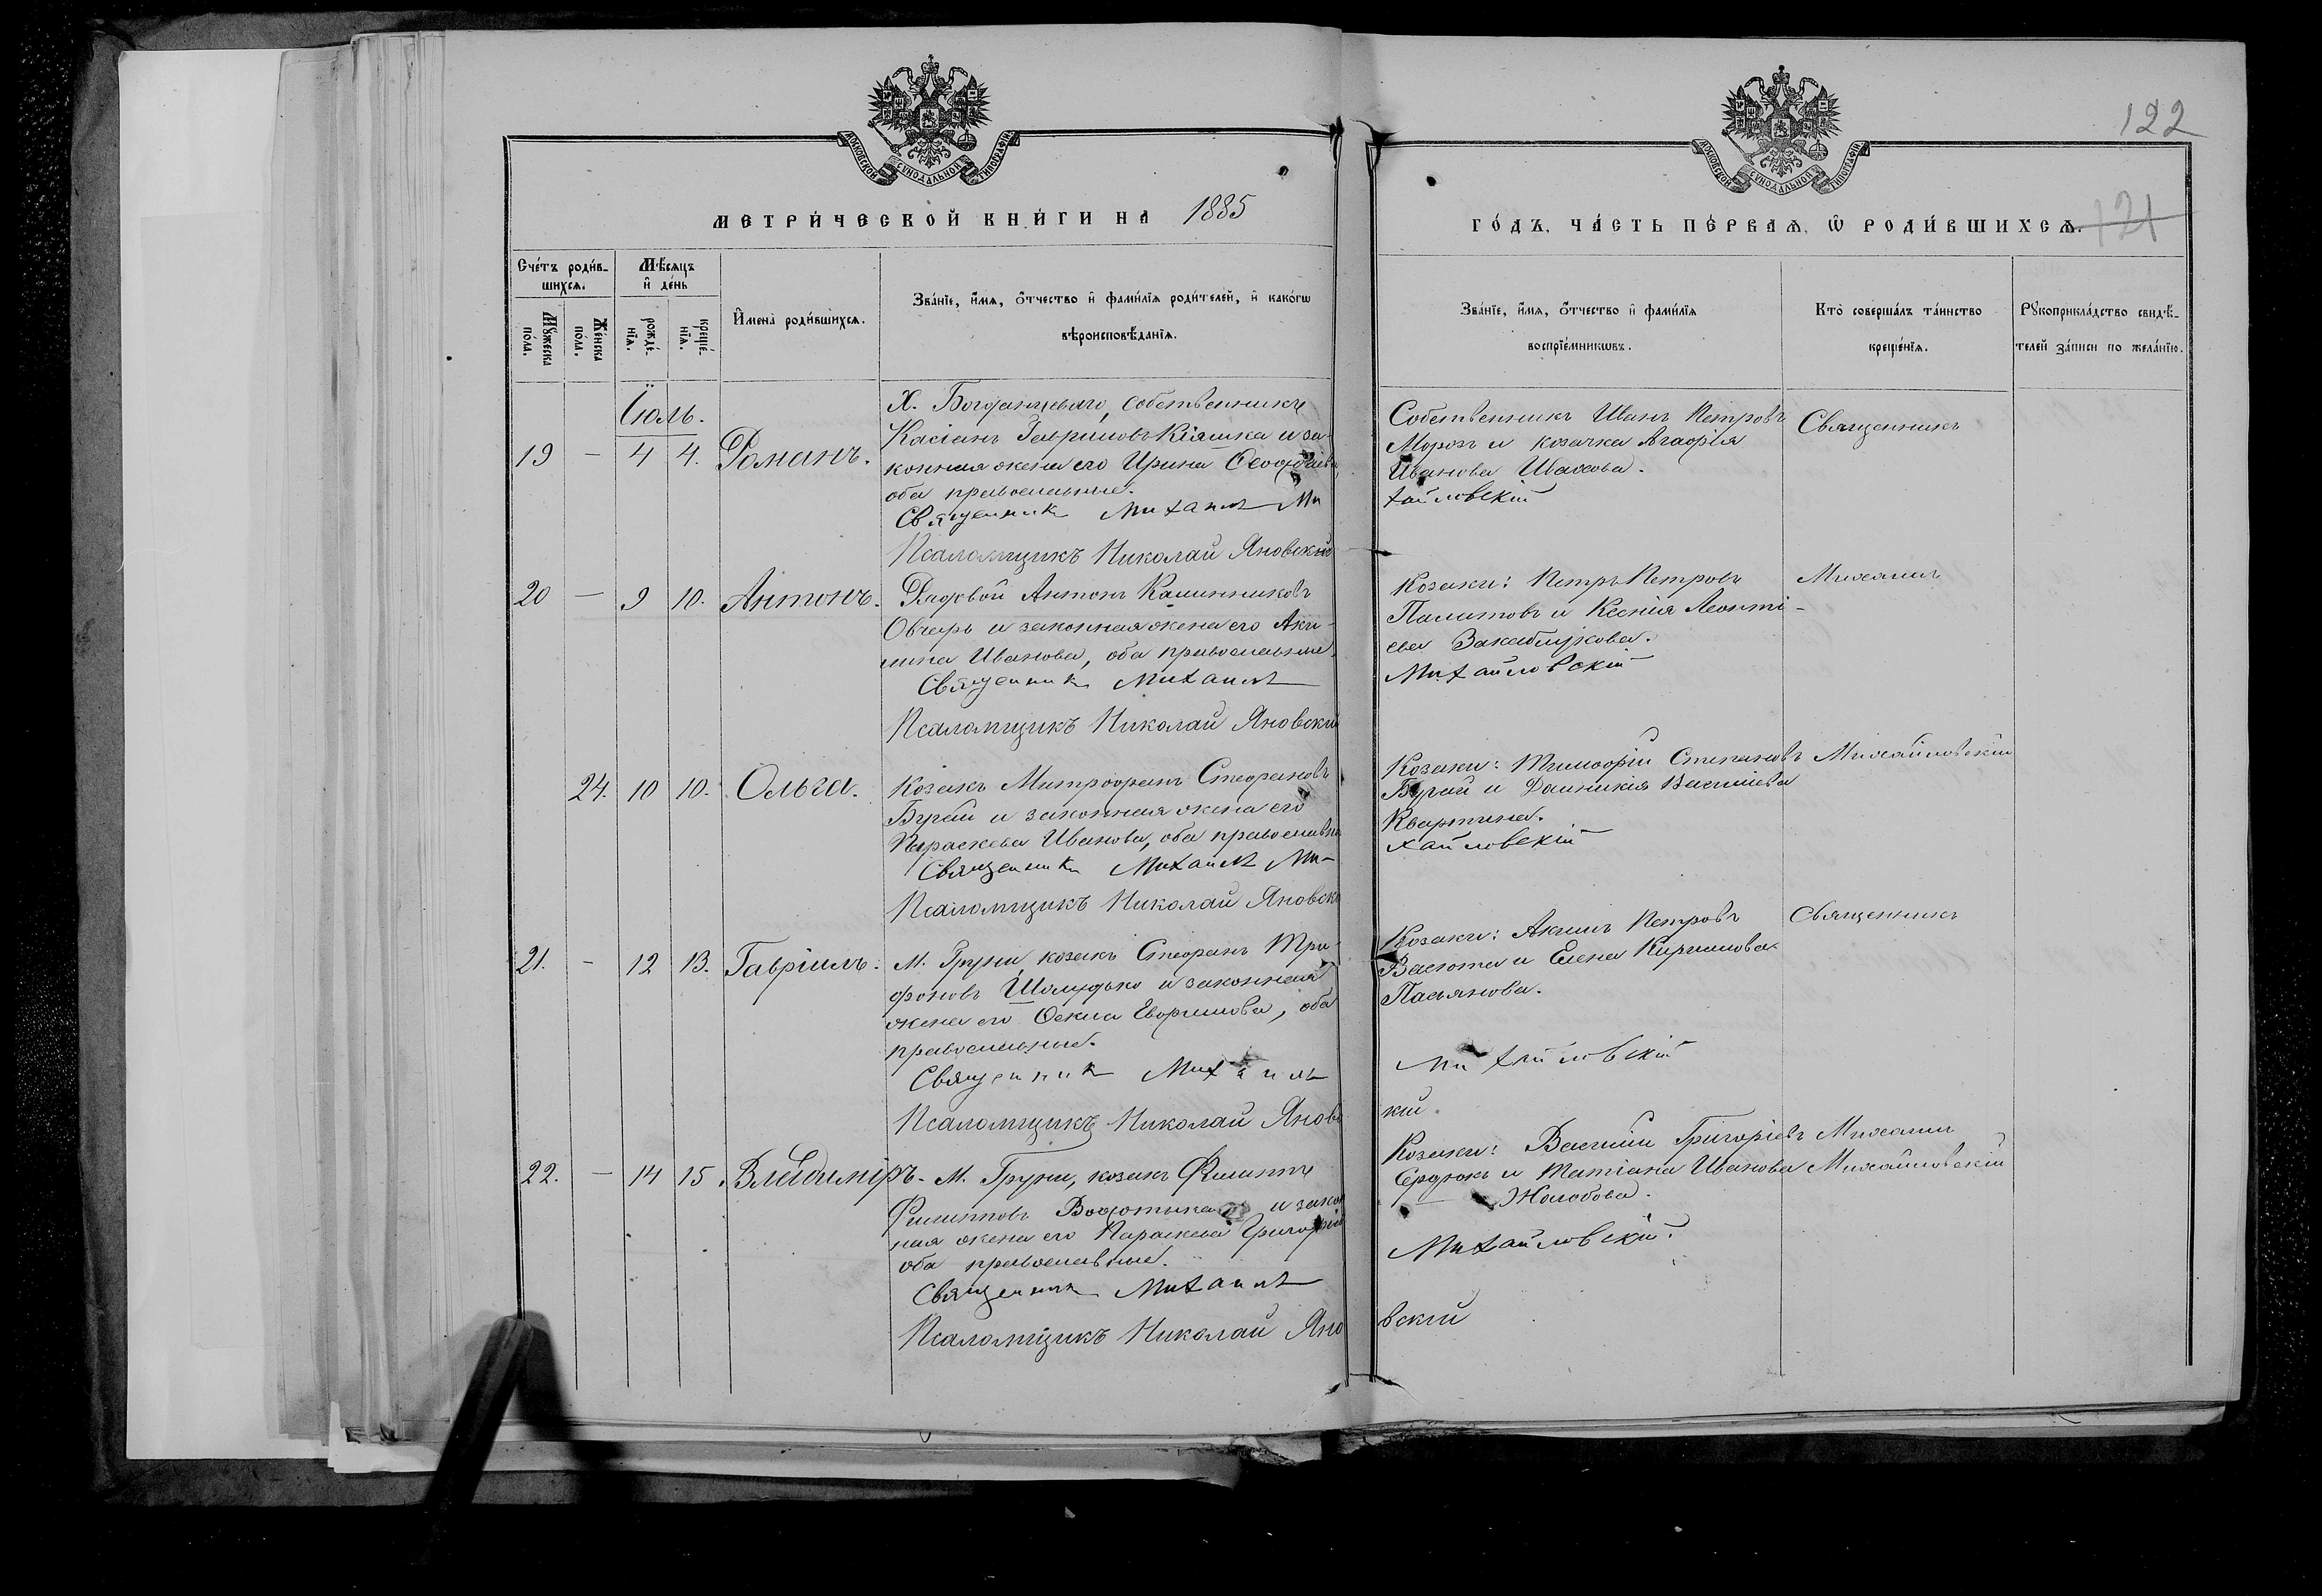 122
121
МОСКОВСКОЙ СѴНОДАЛЬНОЙ ТИПОГРАФІИ
МОСКОВСКОЙ СѴНОДАЛЬНОЙ ТИПОГРАФІИ
МЕТРИ́ЧЕСКОЙ КНИ́ГИ НА 1885
ГО́ДЪ, ЧА́СТЬ ПЕ́РВАѦ, Ѡ҆ РОДИ́ВШИХСѦ.
Сче́тъ роди́в-
шихсѧ.
Мѣ́сѧцъ
и҆ де́нь
Мꙋ́жеска
по́ла.
Же́нска
по́ла.
рожде́-
нїѧ.
креще́-
нїѧ.
И҆мена̀ роди́вшихсѧ.
Зва́нїе, и҆́мѧ, ѻ҆́тчество и҆ фами́лїѧ роди́телей, и҆ како́гѡ
вѣроисповѣ́данїѧ.
Зва́нїе, и҆́мѧ, ѻ҆́тчество и҆ фами́лїѧ
воспрїе́мникѡвъ.
Кто̀ соверша́лъ та́инство
креще́нїѧ.
Рꙋкоприкла́дство свидѣ́-
телей за́писи по жела́нїю.
Іюль.
19 — 4 4. Романъ.
Х. Богданцеваго, собственникъ
Касіанъ Гавриловъ Кіяшка и за-
конная жена его Ирина
оба православные.
Священникъ Михаилъ Ми
Псаломщикъ Николай Яновскій
Собственникъ Иванъ Петровъ
Морозъ и козачка Агафія
Иванова Ивахова.
хайловскій
Священникъ
20 — 9 10. Антонъ.
Рядовой Антонъ Калинниковъ
Овчаръ и законная жена его Аки-
лина Иванова, оба православные
Священникъ Михаилъ
Псаломщикъ Николай Яновскій
Козаки: Петръ Петровъ
и Ксенія Леонті-
ева Закаблукова.
Михайловскій
Михаилъ
24. 10 10. Ольга.
Козакъ Митрофанъ Стефановъ
Бугай и законная жена его
Параскева Иванова, оба православн
Священникъ Михаилъ Ми-
Псаломщикъ Николай Яновскі
Козаки: Тимофій Степановъ
Бугай и Домникія Василіева
Квартина.
хайловскій
Михайловскій
21. — 12 13. Гавріилъ.
М. Груни, козакъ Стефанъ Три-
фоновъ Шолудько и законная
жена его Ѳекла Евфимова, оба
православные.
Священникъ Михаилъ
Псаломщикъ Николай Яновс
Козаки: Акимъ Петровъ
Васюта и Елена Кирилова
Пасьянова.
Михайловскій
кій.
Священникъ
22. — 14 15. Владиміръ.
М. Груни, козакъ Филиппъ
Филипповъ и закон
ная жена его Параскева Григоріе
оба православные.
Священникъ Михаилъ
Псаломщикъ Николай Яно
Козаки: Василій Григоріевъ
Сердюкъ и Татіана Иванова
Жолобова.
Михайловскій.
вскій
Михаилъ
Михайловскій